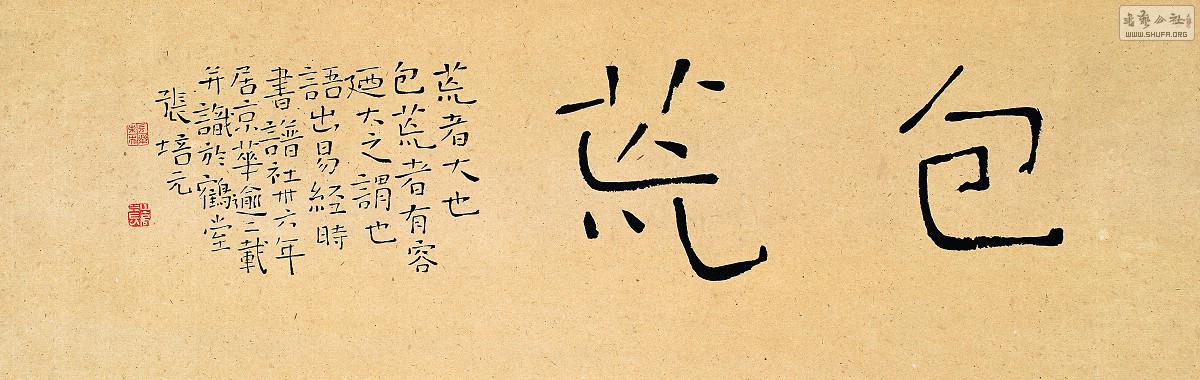 包荒
荒者大也
包荒者有容
廼大之謂也
語出易經時
書譜社卅六年
居京華逾二載
并識於鶴堂
張培元
书艺公社
WWW.SHUFA.ORG